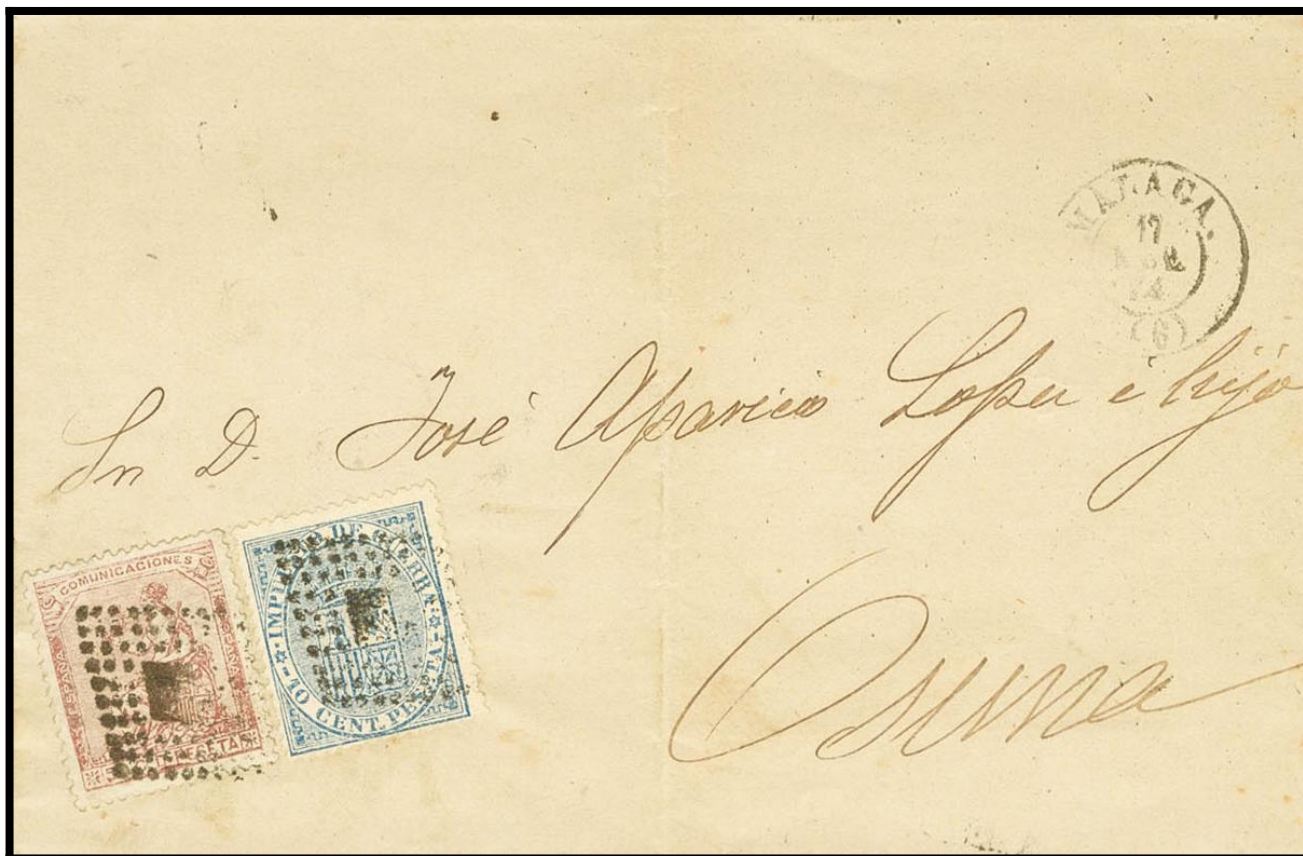 MALAGA.
17
74
(6)
Sr. D. José Aparicio Lopez é hijo
Osuna
COMUNICACIONES
ESPAÑA
ESPAÑA
PESETA
IMPUESTO DE GUERRA
10 CENT. PESETA